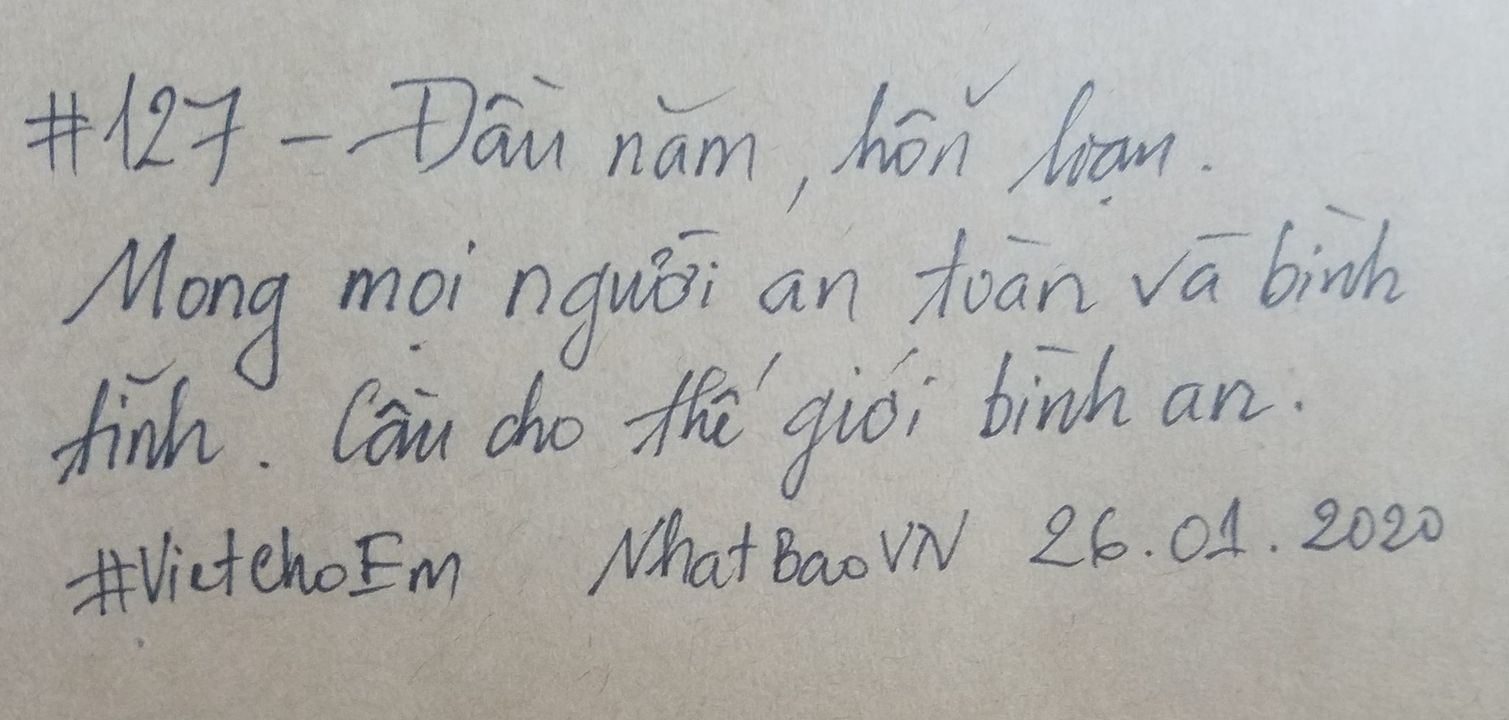 #127 - Đầu năm, hỗn loạn.
Mong mọi người an toàn và bình
tĩnh. Cầu cho thế giới bình an.
#VietchoEm NhatBaoVN 26.01.2020